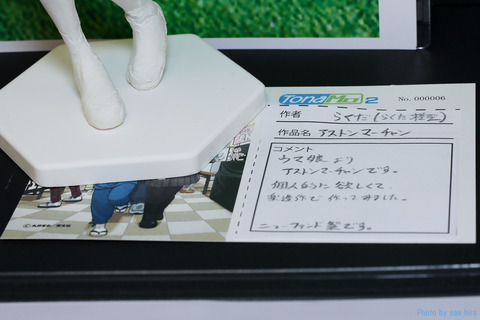 TonaMo 2
No. 000006
作者 らくだ(らくだ模型)
作品名 アストンマーチャン
コメント
ウマ娘より
アストンマーチャンです。
個人的に欲しくて、
作ってみました。
ニューファンド製です。
Photo by sae hiro